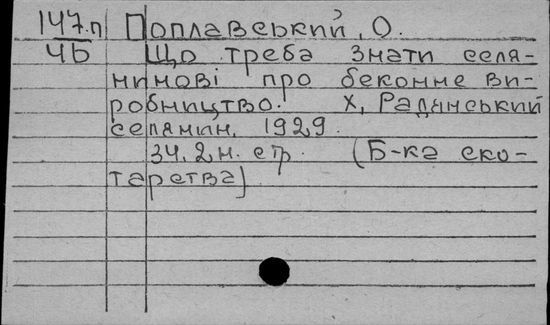 147.п Поплавський, О.
ЧБ Що треба знати селя-
нинові про беконне ви-
робництво. Х, Радянський
селянин, 1929.
34, 2 н. стр. (Б-ка ско-
тарства)